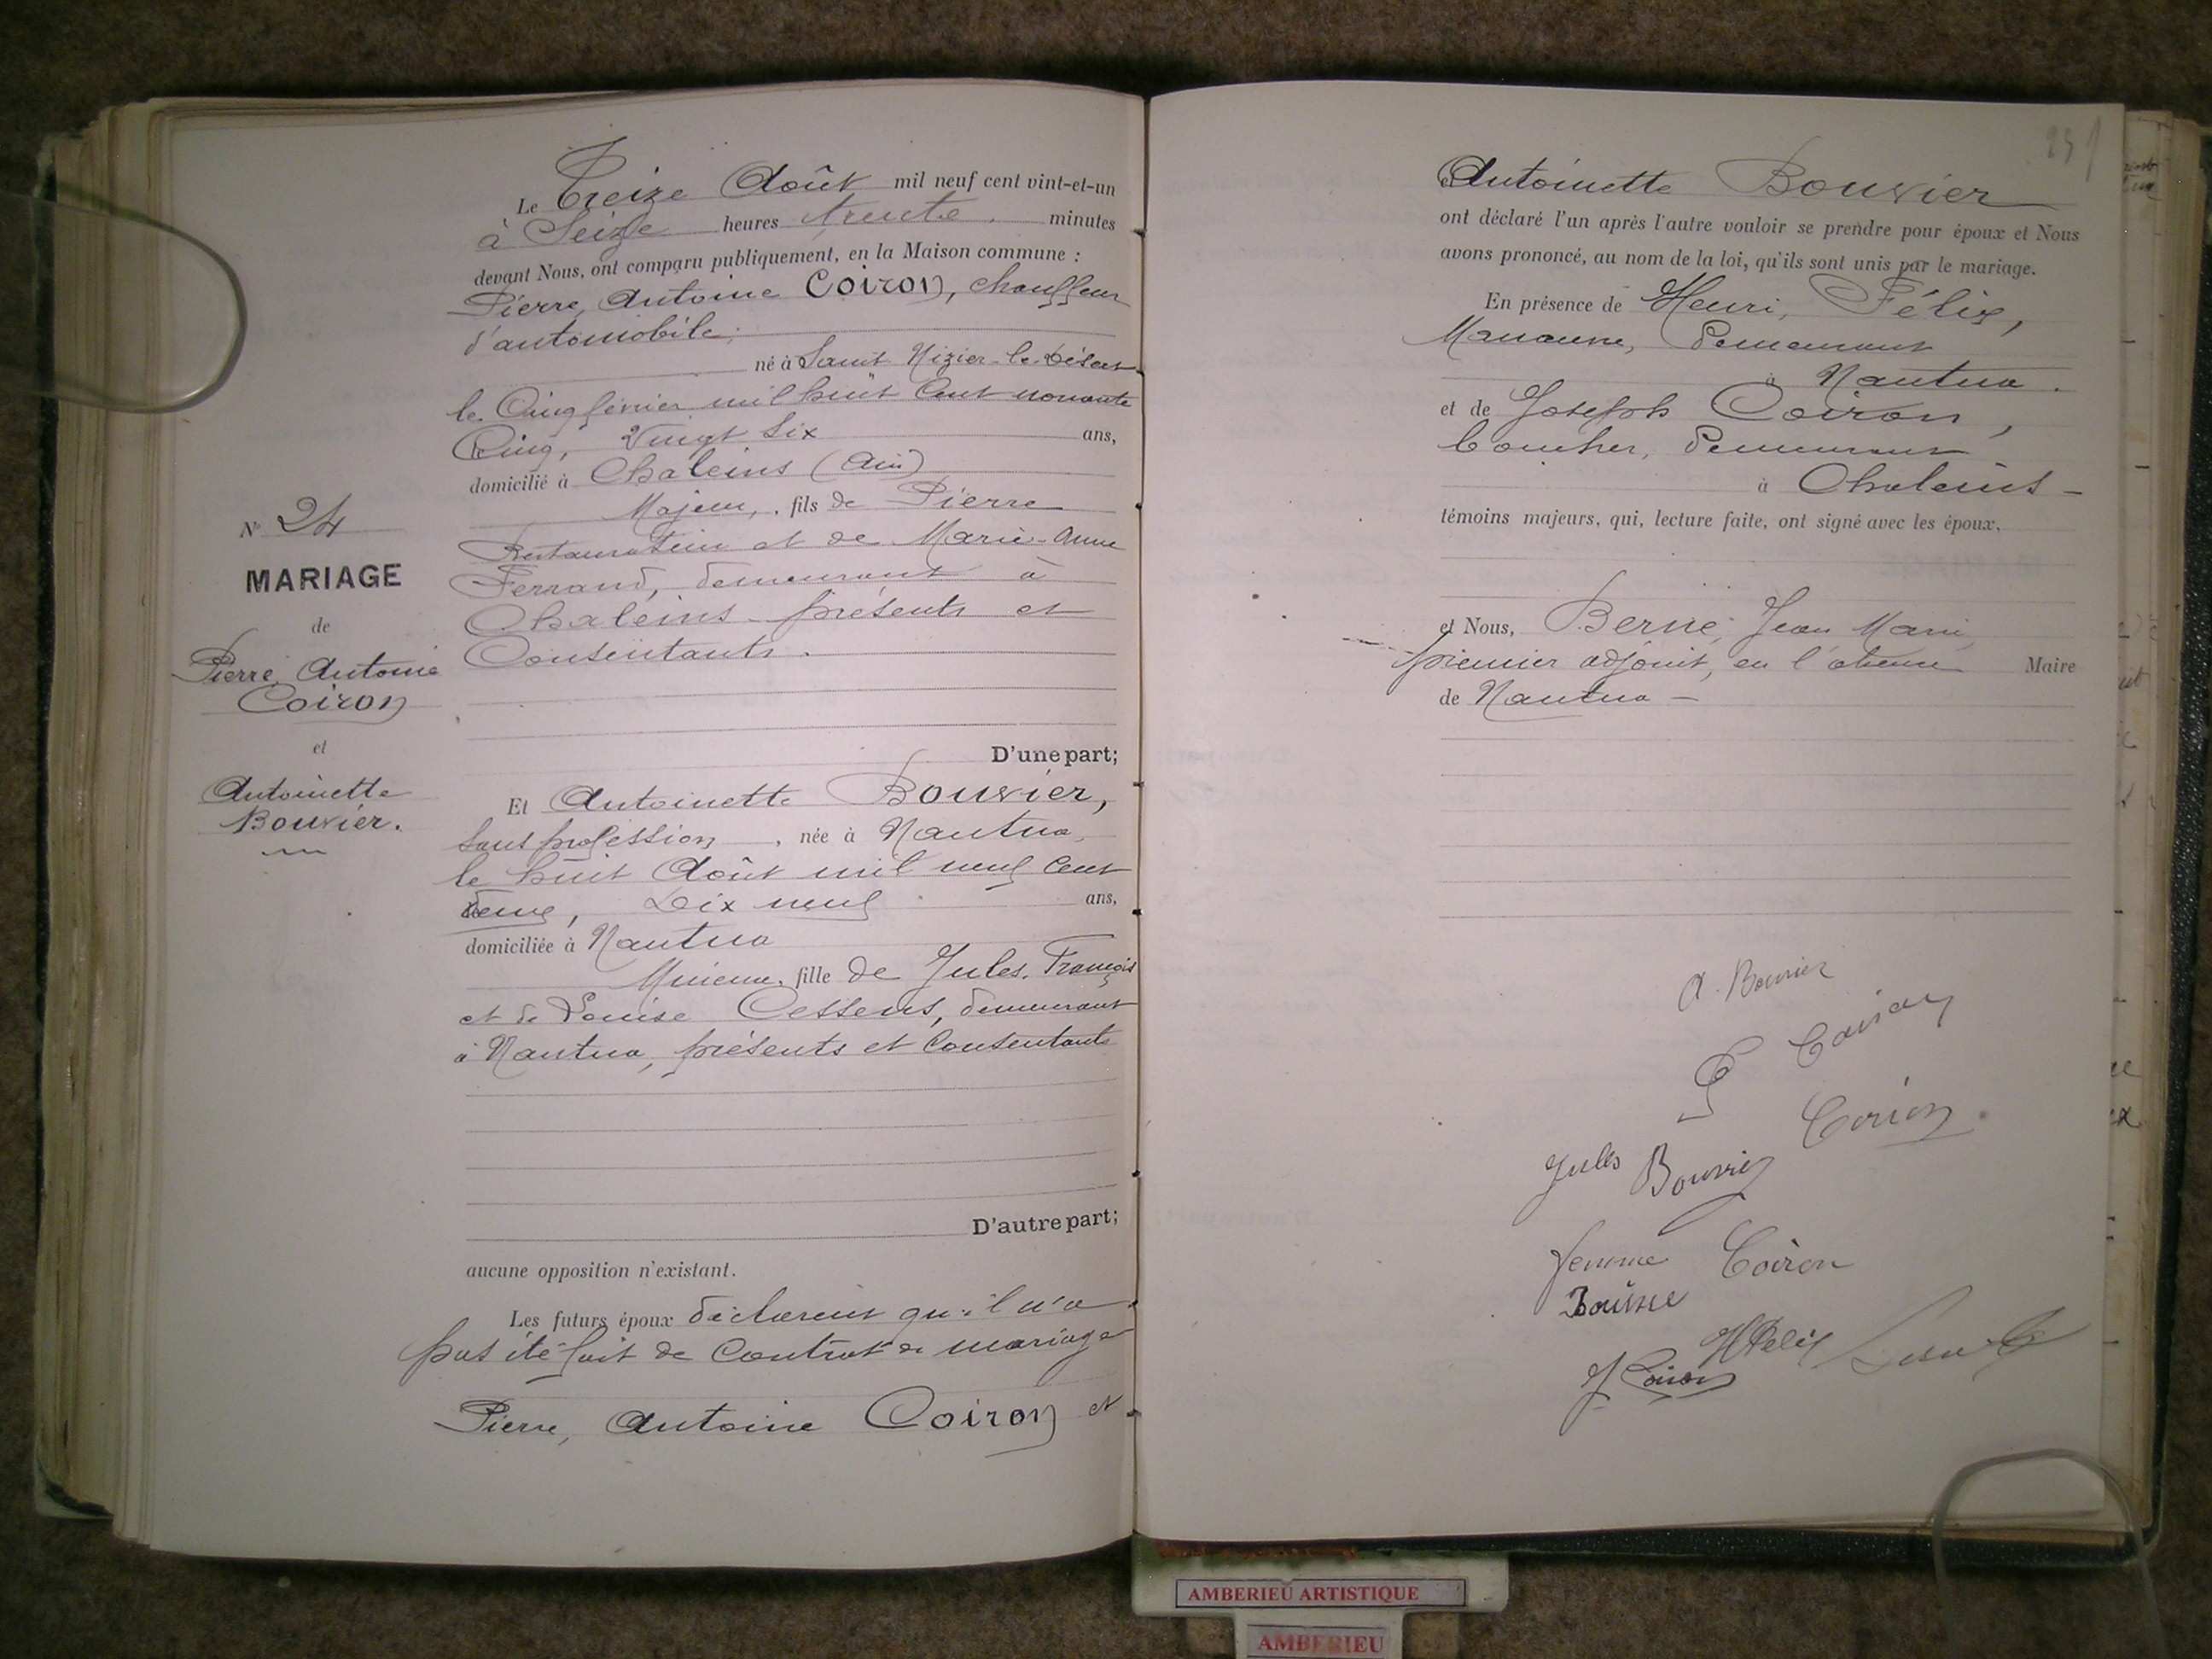 N° 24
MARIAGE
de
Pierre, Antoine
Coiron
et
Antoinette
Bouvier.
Le Treize Août mil neuf cent vint-et-un
à Seize heures trente minutes
devant Nous, ont comparu publiquement, en la Maison commune :
Pierre, Antoine Coiron, chauffeur
d'automobile.
né à Saint Nizier-le-Désert
le Cinq février mil huit Cent nonante
Cinq, Vingt Six ans,
domicilié à Chaleins (Ain)
Majeur, fils de Pierre
Restaurateur et de Marie-Anne
Ferrand, demeurant à
Chaleins présents et
Consentants.
D'une part;
Et Antoinette Bouvier,
sans profession, née à Nantua,
le huit Août mil neuf Cent
deux, Dix neuf ans,
domiciliée à Nantua
Mineure, fille de Jules, François
et de Louise Cessens, demeurant
à Nantua, présents et Consentants
D'autre part;
aucune opposition n'existant.
Les futurs époux déclarent qu'il n'a
pas été fait de Contrat de mariage
Pierre, Antoine Coiron et
251
et Antoinette Bouvier
ont déclaré l'un après l'autre vouloir se prendre pour époux et Nous
avons prononcé, au nom de la loi, qu'ils sont unis par le mariage.
En présence de Henri, Félix,
demeurant
à Nantua.
et de Joseph Coiron,
boucher, demeurant
à Chaleins -
témoins majeurs, qui, lecture faite, ont signé avec les époux,
et Nous, Berne, Jean Marie
premier adjoint, en l'absence Maire
de Nantua -
A. Bouvier
P Coiron
Coiron
Jules Bouvier
femme Coiron
HFélix
J Coiron
AMBERIEU ARTISTIQUE
AMBERIEU